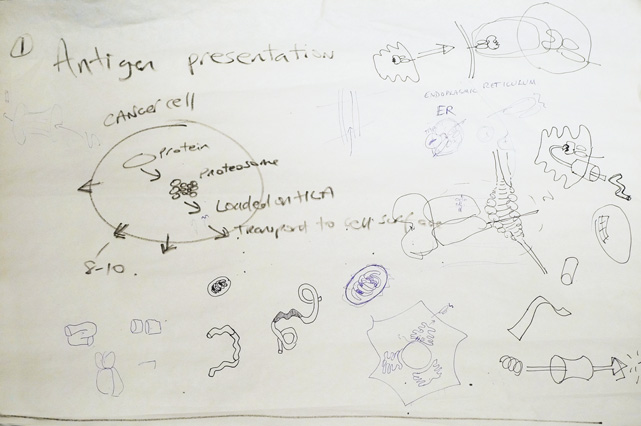 ① Antigen presentation
CANcer cell
Protein
Proteosome
Loaded on HLA
Transport to cell surface
8-10.
ENDOPLASMIC RETICULUM
ER